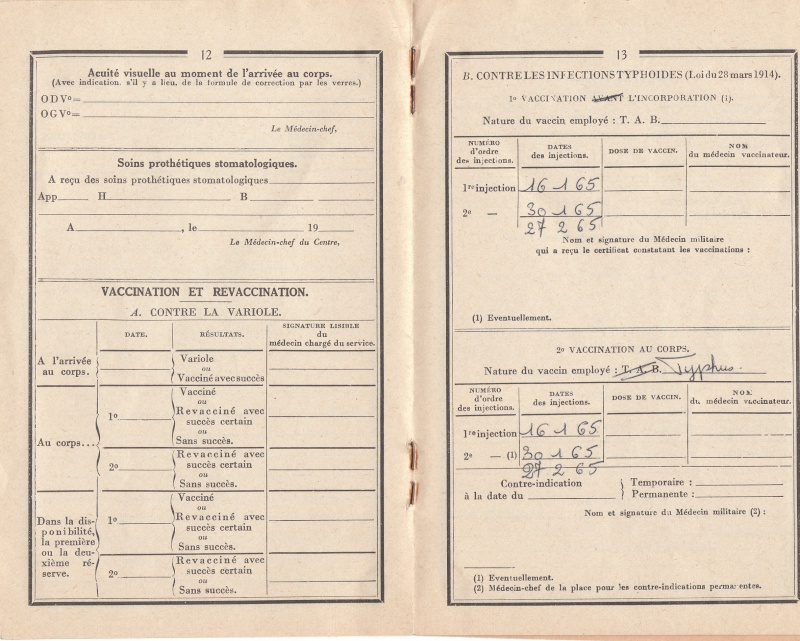 12
Acuité visuelle au moment de l'arrivée au corps.
(Avec indication, s'il y a lieu, de la formule de correction par les verres.)
O D Vº=
O G Vº=
Le Médecin-chef,
Soins prothétiques stomatologiques.
A reçu des soins prothétiques stomatologiques
App H B
A , le 19
Le Médecin-chef du Centre,
VACCINATION ET REVACCINATION.
A. CONTRE LA VARIOLE.
DATE. RÉSULTATS. SIGNATURE LISIBLE
du
médecin chargé du service.
A l'arrivée
au corps.
Variole
ou
Vacciné avec succès
Au corps...
1º
Vacciné
ou
Revacciné avec
succès certain
ou
Sans succès.
2º
Revacciné avec
succès certain
ou
Sans succès.
Dans la dis-
ponibilité,
la première
ou la deu-
xième ré-
serve.
1º
Vacciné
ou
Revacciné avec
succès certain
ou
Sans succès.
2º
Revacciné avec
succès certain
ou
Sans succès.
13
B. CONTRE LES INFECTIONS TYPHOIDES (Loi du 28 mars 1914).
1º VACCINATION AVANT L'INCORPORATION (1).
Nature du vaccin employé : T. A. B.
NUMÉRO
d'ordre
des injections.
DATES
des injections.
DOSE DE VACCIN.
NOM
du médecin vaccinateur.
1re injection 16 1 65
2e — 30 1 65
27 2 65
Nom et signature du Médecin militaire
qui a reçu le certificat constatant les vaccinations :
(1) Eventuellement.
2º VACCINATION AU CORPS.
Nature du vaccin employé : T. A. B. Typhus
NUMÉRO
d'ordre
des injections.
DATES
des injections.
DOSE DE VACCIN.
NOM
du médecin vaccinateur.
1re injection 16 1 65
2e — (1) 30 1 65
27 2 65
Contre-indication
à la date du
Temporaire :
Permanente :
Nom et signature du Médecin militaire (2) :
(1) Eventuellement.
(2) Médecin-chef de la place pour les contre-indications permanentes.